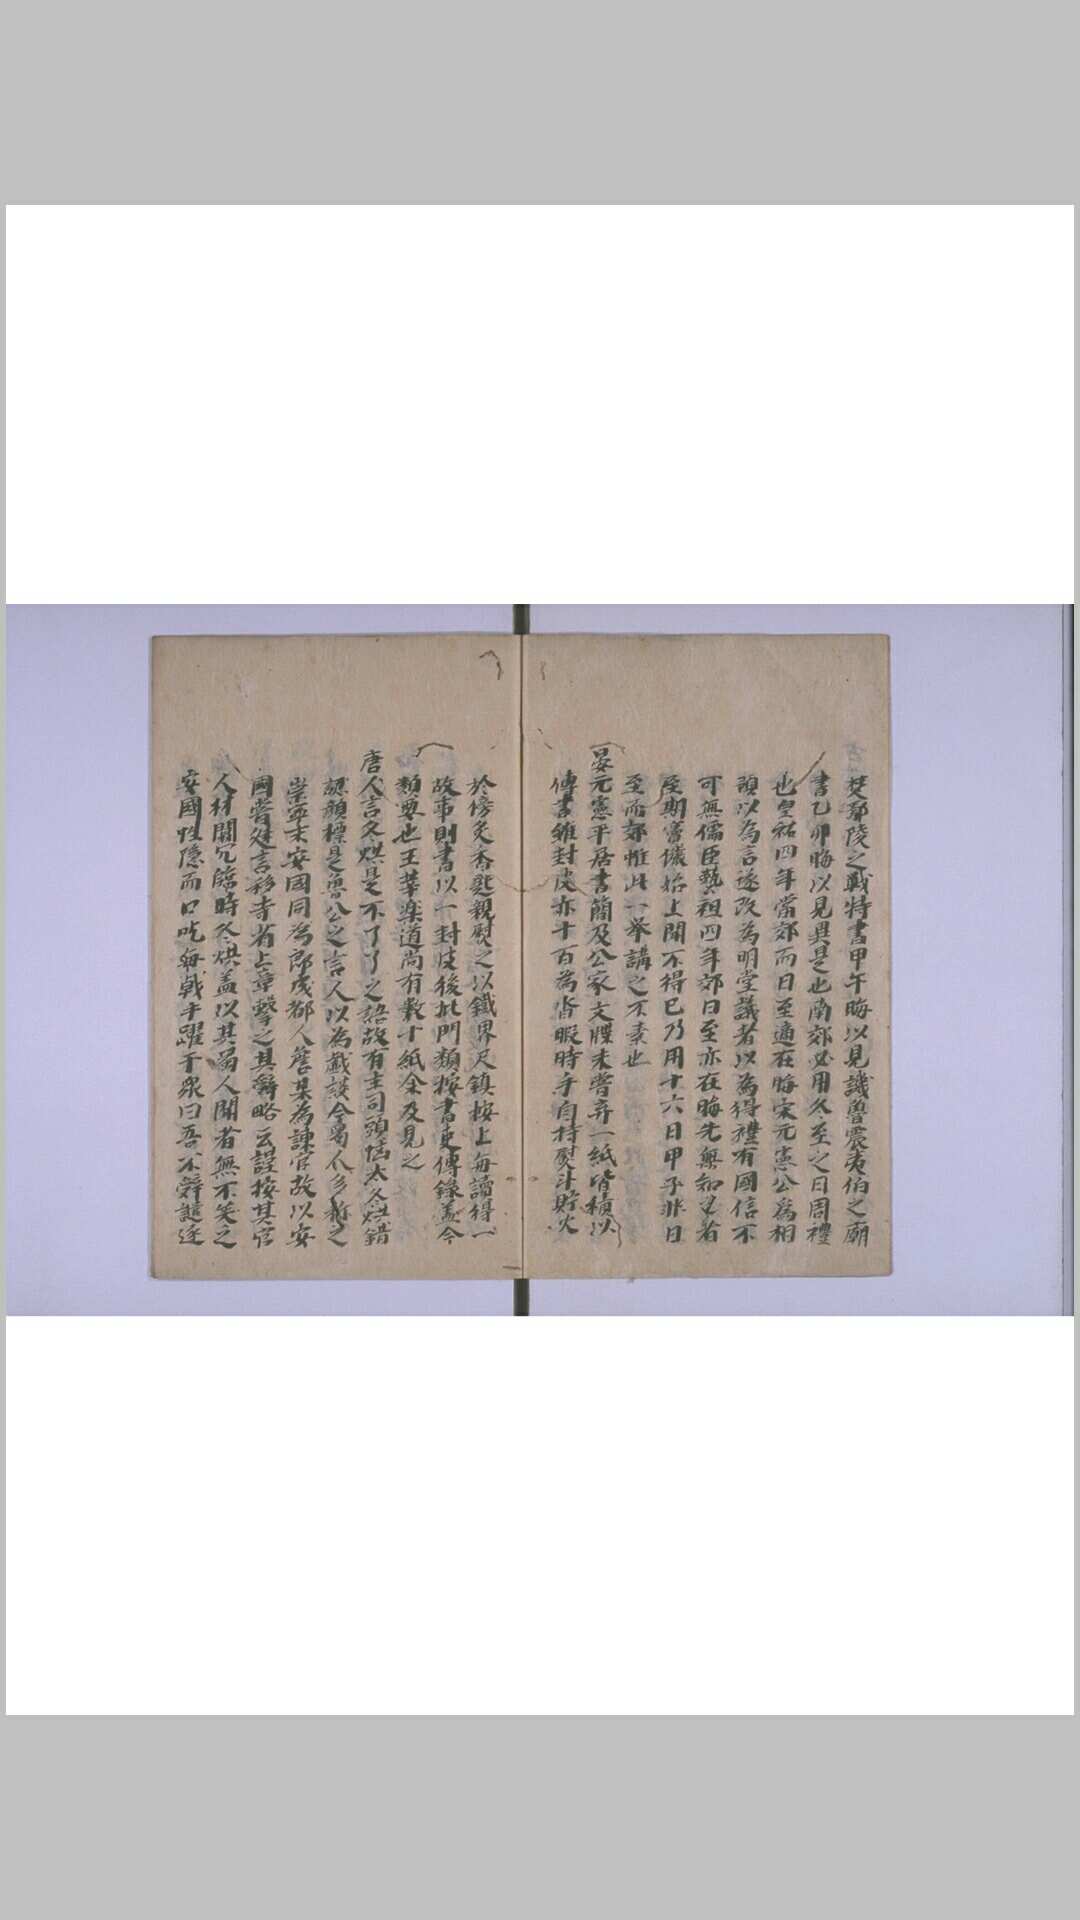 楚鄢陵之戰特書甲午晦以見譏魯震夷伯之廟
書乙卯晦以見異是也南郊必用冬至之日周禮
也皇祐四年當郊而日至適在晦宋元憲公為相
預以為言遂改為明堂議者以為得禮有國信不
可無儒臣藝祖四年郊日至亦在晦先無知者
至期竇儀始上聞不得已乃用十六日甲子非日
至而郊惟此一舉講之不素也
晏元憲平居書簡及公家文牒未嘗弃一紙皆積以
傳書雖封皮亦十百為沓暇時手自持熨斗貯火
於傍炙香匙親熨之以鐵界尺鎮按上每讀得一
故事則書以一封皮後批門類按書吏傳錄盖今
類要也王莘楽道尚有數十紙余及見之
唐人言冬烘是不了了之語故有主司頭恼太冬烘錯
認顏標是魯公之言人以為戲談今蜀人多称之
崇寧末安国同為郎成都人詹某為諫官故以安
國嘗建言移寺省上章擊之其辭略云謹按其官
人材闒冗臨時冬烘盖以其蜀人聞者無不笑之
安國性隱而口吃每戟手躍于眾曰吾不辤譴逐